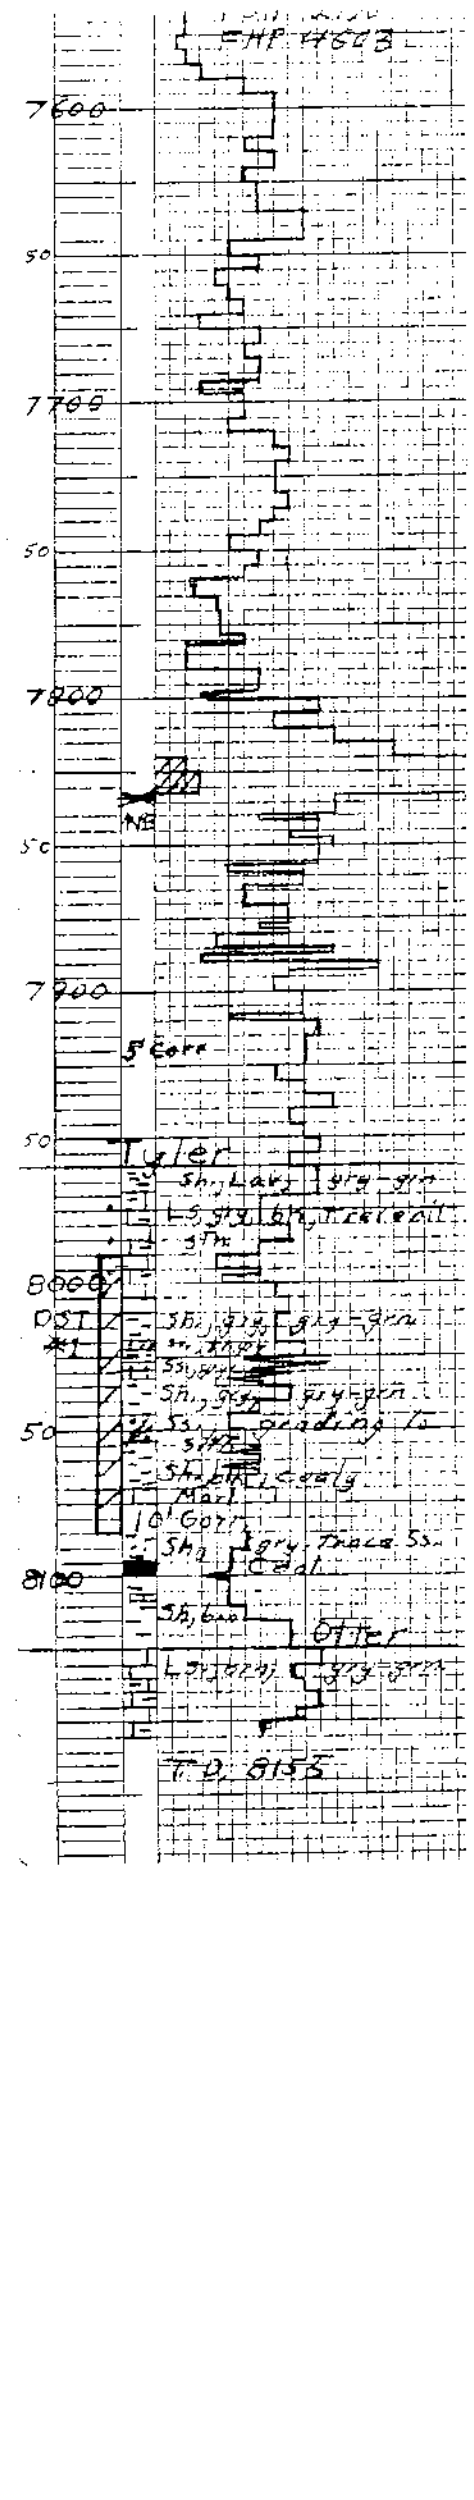 FHP 4603
7600
50
7700
50
7800
NB
50
7900
5' Corr
50
Tyler
Sh, Lav, gry-grn
LS, gry, bn, Trace oil
stn
8000
DST Sh, gry, gry-grn
*1
Ss,
Sh, gry, gry-grn
50 Ss, grading to
Sh, blk, Coaly
Marl
10' Corr
Sh, gry, Trace Ss.
Coal
8100
Sh, brn
Otter
Ls, gry-grn
T.D. 8155